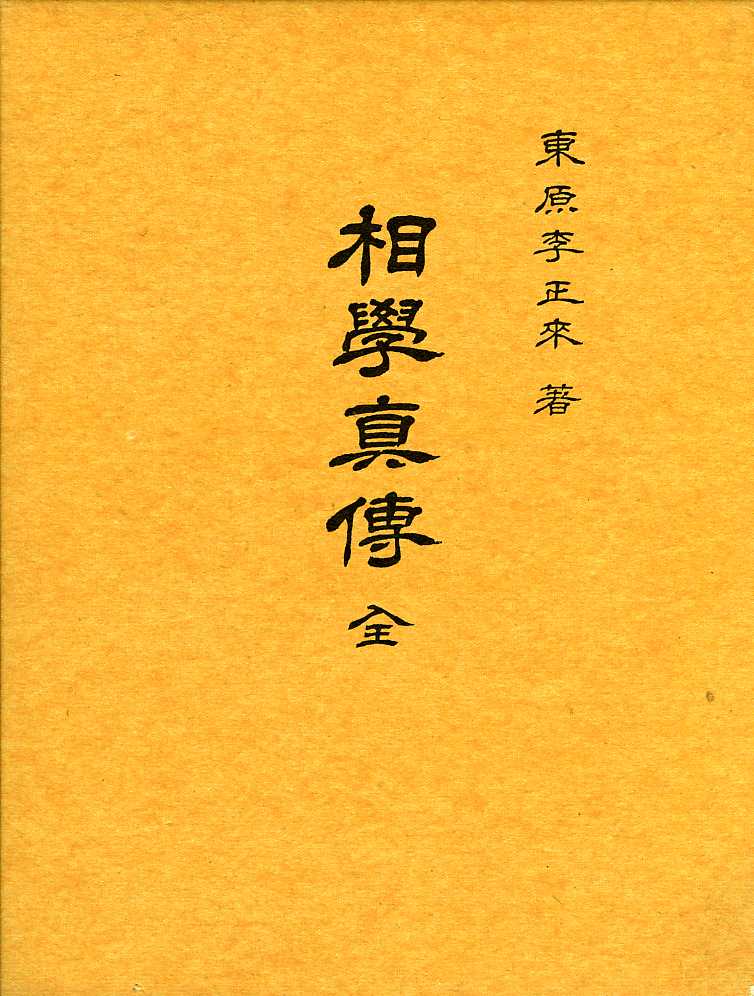 東原李正來 著
相學真傳 全